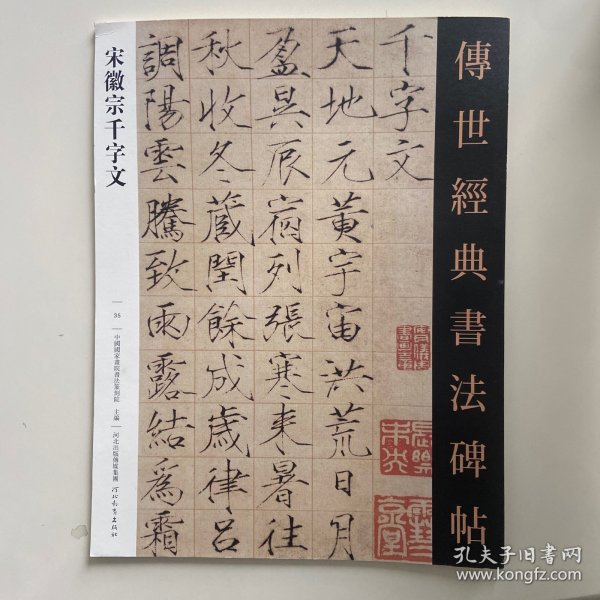 傳世經典書法碑帖
千字文
天地元黃宇宙洪荒日月
盈昃辰宿列張寒來暑往
秋收冬藏閏餘成歲律呂
調陽雲騰致雨露結爲霜
宋徽宗千字文
35
中國國家畫院書法篆刻院 主編
河北出版傳媒集團
河北教育出版社
孔夫子旧书网
www.kongfz.com